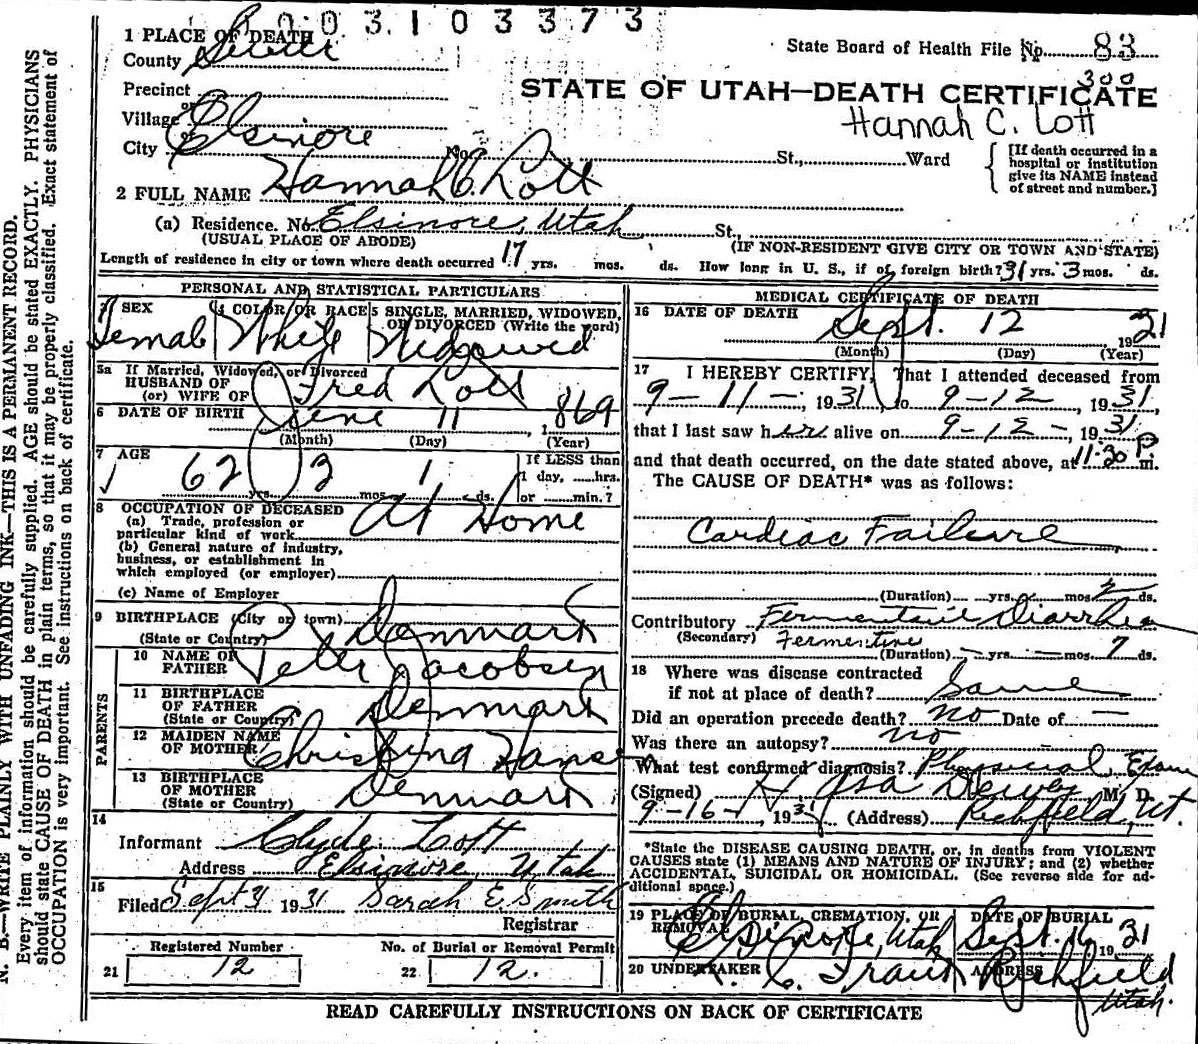 003103373
1 PLACE OF DEATH
County Sevier
State Board of Health File No. 83
300
Precinct
STATE OF UTAH—DEATH CERTIFICATE
Hannah C. Lott
Village
or
City Elsinore No. St., Ward
[If death occurred in a hospital or institution give its NAME instead of street and number.]
2 FULL NAME Hannah C. Lott
(a) Residence. No. Elsinore, Utah St.,
(USUAL PLACE OF ABODE) (IF NON-RESIDENT GIVE CITY OR TOWN AND STATE)
Length of residence in city or town where death occurred 17 yrs. mos. ds. How long in U. S., if of foreign birth? 31 yrs. 3 mos. ds.
PERSONAL AND STATISTICAL PARTICULARS
3 SEX 4 COLOR OR RACE 5 SINGLE, MARRIED, WIDOWED, OR DIVORCED (Write the word)
Female White Widowed
5a If Married, Widowed, or Divorced
HUSBAND OF
(or) WIFE OF Fred Lott
6 DATE OF BIRTH June 11, 1869
(Month) (Day) (Year)
7 AGE 62 yrs. 3 mos. 1 ds.
If LESS than
1 day, hrs.
or min.?
8 OCCUPATION OF DECEASED
(a) Trade, profession or
particular kind of work At Home
(b) General nature of industry,
business, or establishment in
which employed (or employer)
(c) Name of Employer
9 BIRTHPLACE (City or town)
(State or Country) Denmark
PARENTS
10 NAME OF
FATHER Peter Jacobsen
11 BIRTHPLACE
OF FATHER
(State or Country) Denmark
12 MAIDEN NAME
OF MOTHER Christina Hansen
13 BIRTHPLACE
OF MOTHER
(State or Country) Denmark
14
Informant Clyde Lott
Address Elsinore, Utah
15
Filed Sept 1931 Sarah E Smith
Registrar
Registered Number No. of Burial or Removal Permit
21 12 22 12.
MEDICAL CERTIFICATE OF DEATH
16 DATE OF DEATH
Sept. 12 1931
(Month) (Day) (Year)
17 I HEREBY CERTIFY, That I attended deceased from
9-11-, 1931, to 9-12, 1931,
that I last saw her alive on 9-12-, 1931
and that death occurred, on the date stated above, at 11:30 P. m.
The CAUSE OF DEATH* was as follows:
Cardiac Failure
(Duration) yrs. mos. 2 ds.
Contributory Diarrhea
(Secondary) Fermentive
(Duration) — yrs. — mos. 7 ds.
18 Where was disease contracted
if not at place of death? Same
Did an operation precede death? no Date of —
Was there an autopsy? no
What test confirmed diagnosis? Physical Exam
(Signed) Asa Dewey M. D.
9-16-, 1931 (Address) Richfield, Ut.
*State the DISEASE CAUSING DEATH, or, in deaths from VIOLENT
CAUSES state (1) MEANS AND NATURE OF INJURY; and (2) whether
ACCIDENTAL, SUICIDAL OR HOMICIDAL. (See reverse side for ad-
ditional space.)
19 PLACE OF BURIAL, CREMATION, OR REMOVAL DATE OF BURIAL
Elsinore, Utah Sept. 16 1931
20 UNDERTAKER ADDRESS
Richfield
Utah.
READ CAREFULLY INSTRUCTIONS ON BACK OF CERTIFICATE
N. B.—WRITE PLAINLY WITH UNFADING INK—THIS IS A PERMANENT RECORD.
Every item of information should be carefully supplied. AGE should be stated EXACTLY. PHYSICIANS
should state CAUSE OF DEATH in plain terms, so that it may be properly classified. Exact statement of
OCCUPATION is very important. See instructions on back of certificate.